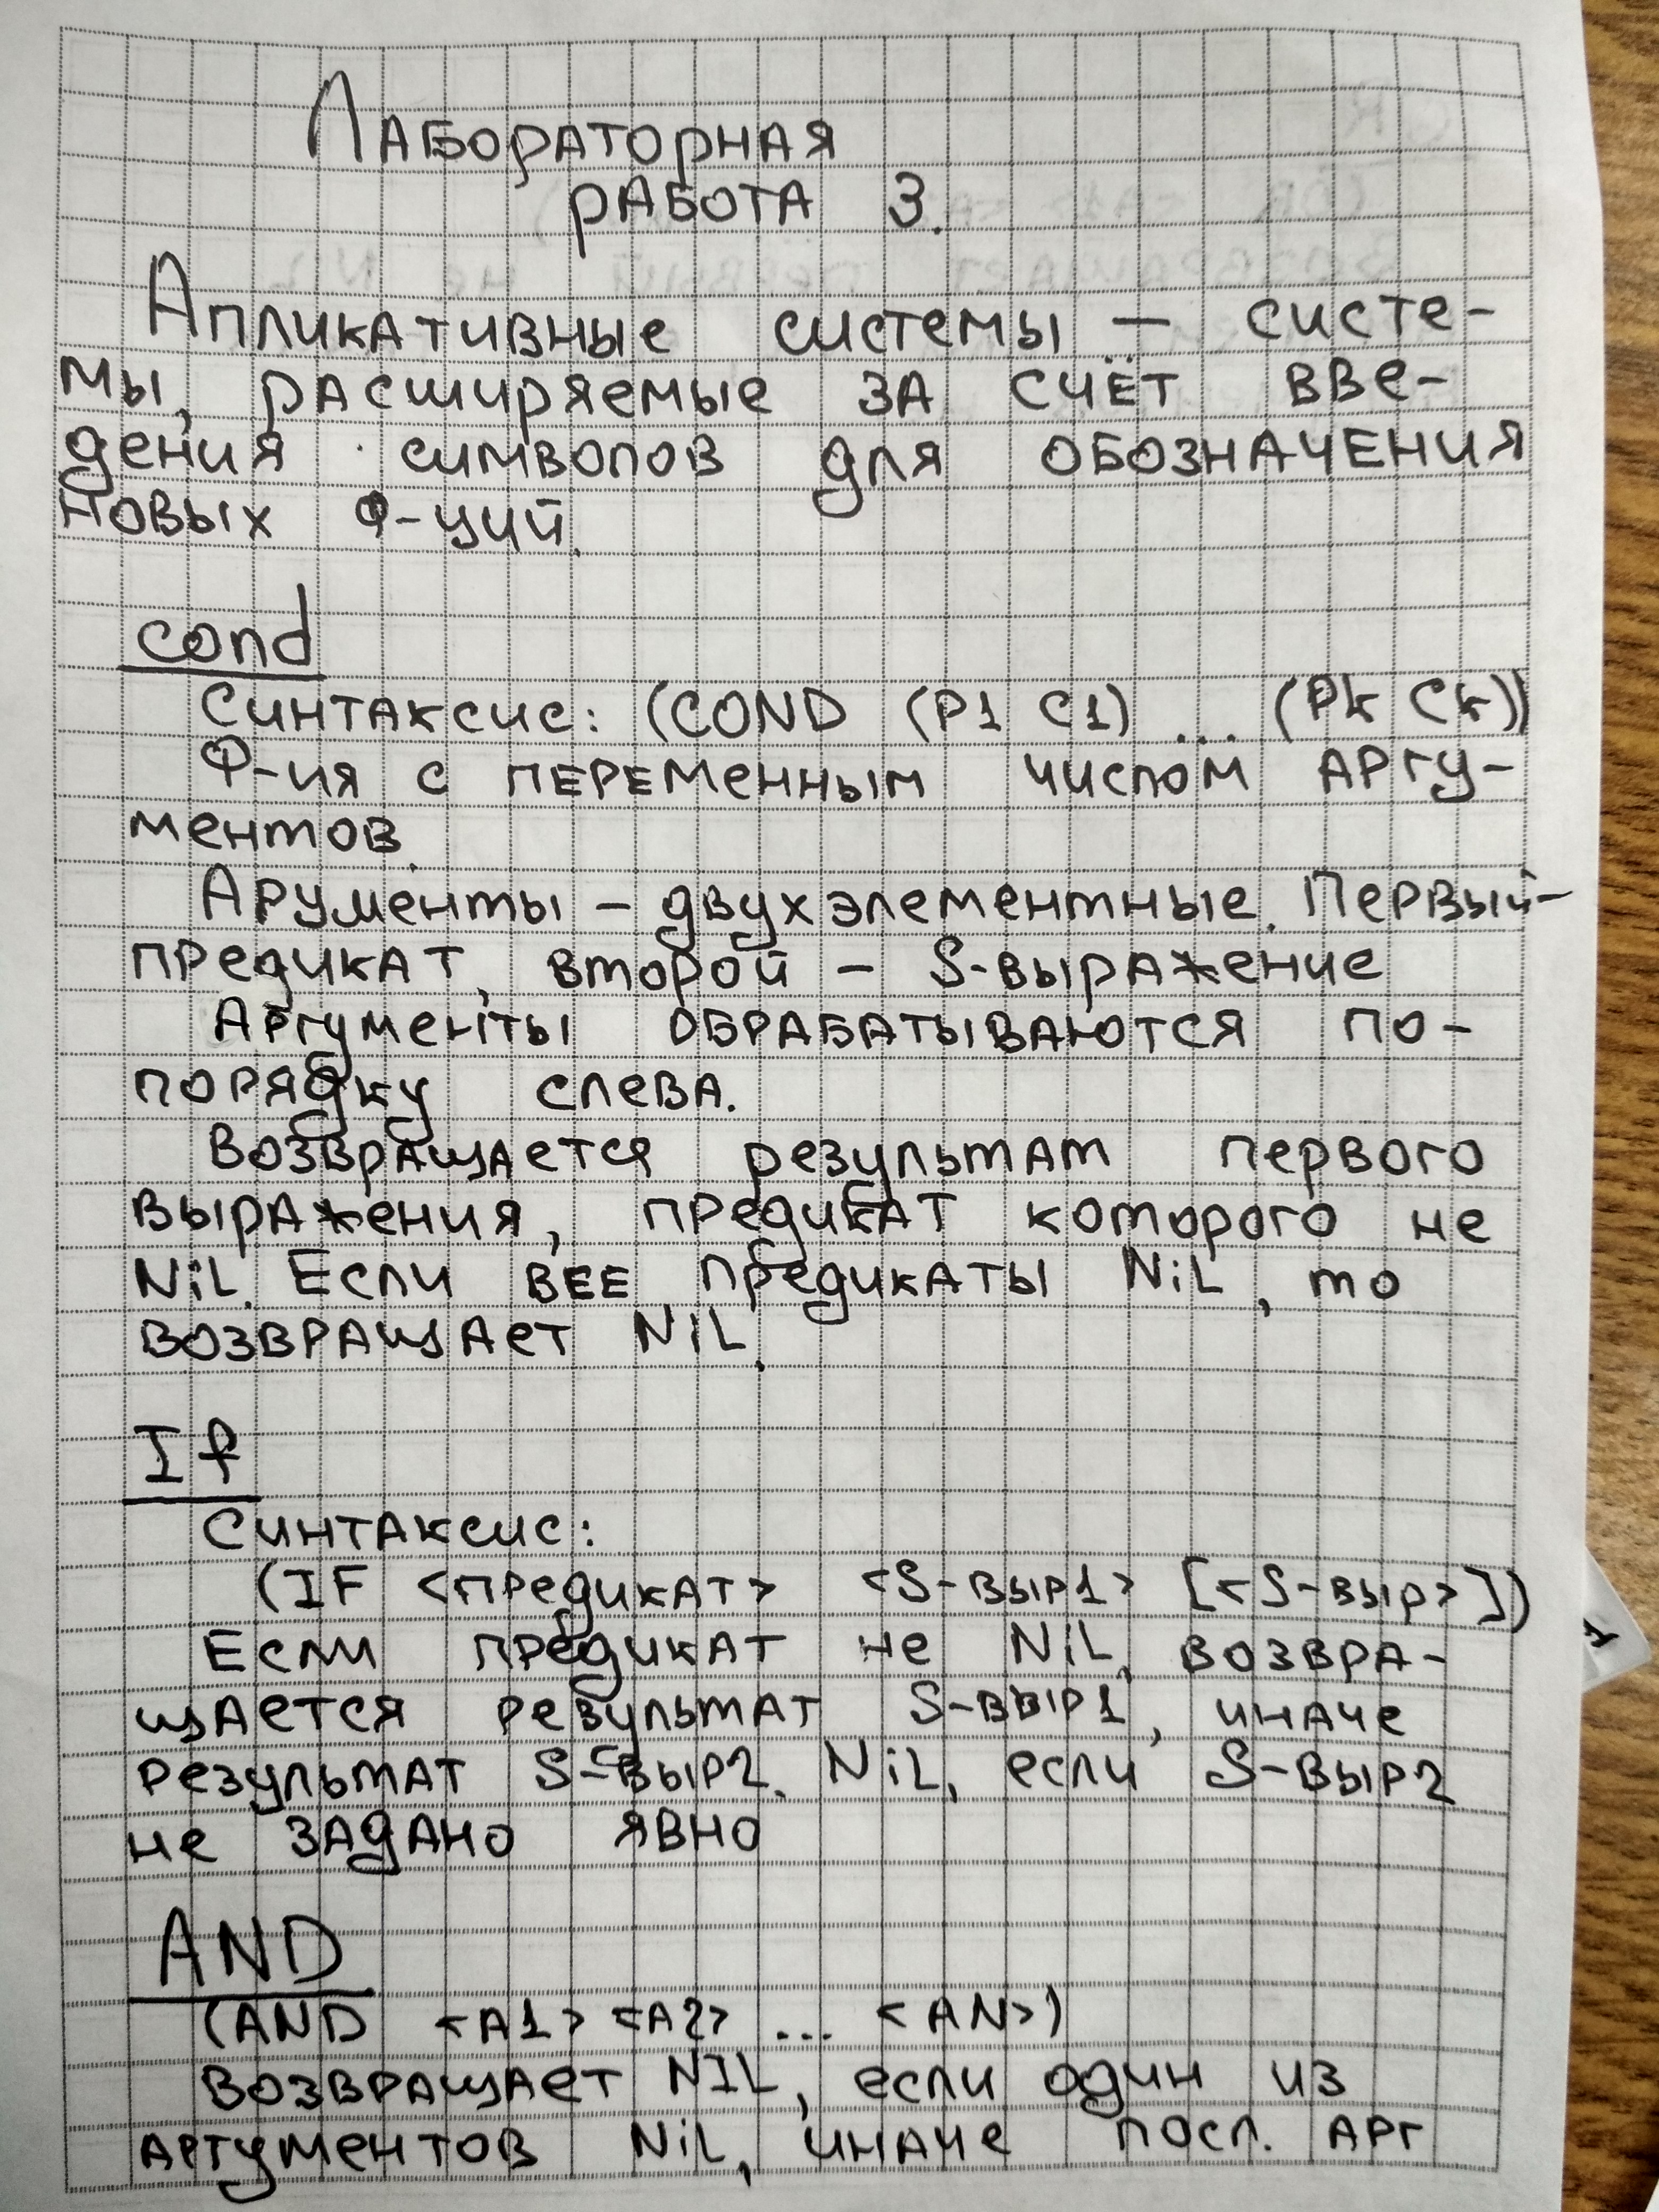 Лабораторная
работа 3.
Аппликативные системы — систе-
мы, расширяемые за счёт вве-
дения символов для обозначения
новых Ф-уий.
cond
Синтаксис: (COND (P1 C1) ... (Pk Ck))
Ф-ия с переменным числом аргу-
ментов.
Арументы - двухэлементные. Первый-
предикат, второй - S-выражение
Аргументы обрабатываются по-
порядку слева.
Возвращается результат первого
выражения, предикат которого не
NiL. Если все предикаты NiL, то
возвращает NiL.
If
Синтаксис:
(IF <предикат> <S-выр1> [<S-выр>])
Если предикат не NiL, возвра-
щается результат S-выр1, иначе
результат S-выр2. NiL, если S-выр2
не задано явно
AND
(AND <A1> <A2> ... <AN>)
Возвращает NIL, если один из
аргументов NiL, иначе посл. арг
1